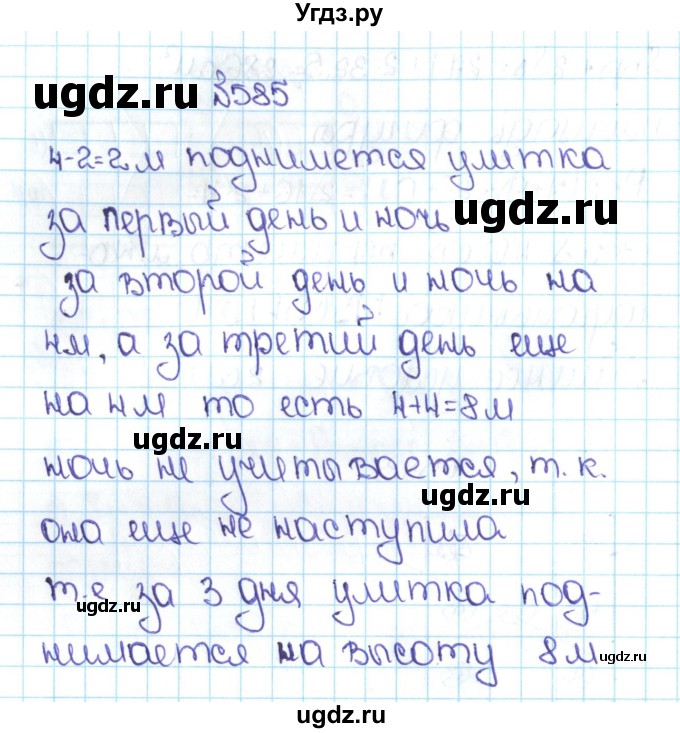 Угдз.ру
ugdz.ru №585
4-2=2м поднимется улитка
за первый день и ночь ugdz.ru
за второй день и ночь на
4м, а за третий день еще
на 4м то есть 4+4=8м
ugdz.ru
ночь не учитывается, т.к.
ugdz.ru
она еще не наступила
т.е за 3 дня улитка под-
ugdz.ru
нимается на высоту 8м
ugdz.ru
ugdz.ru